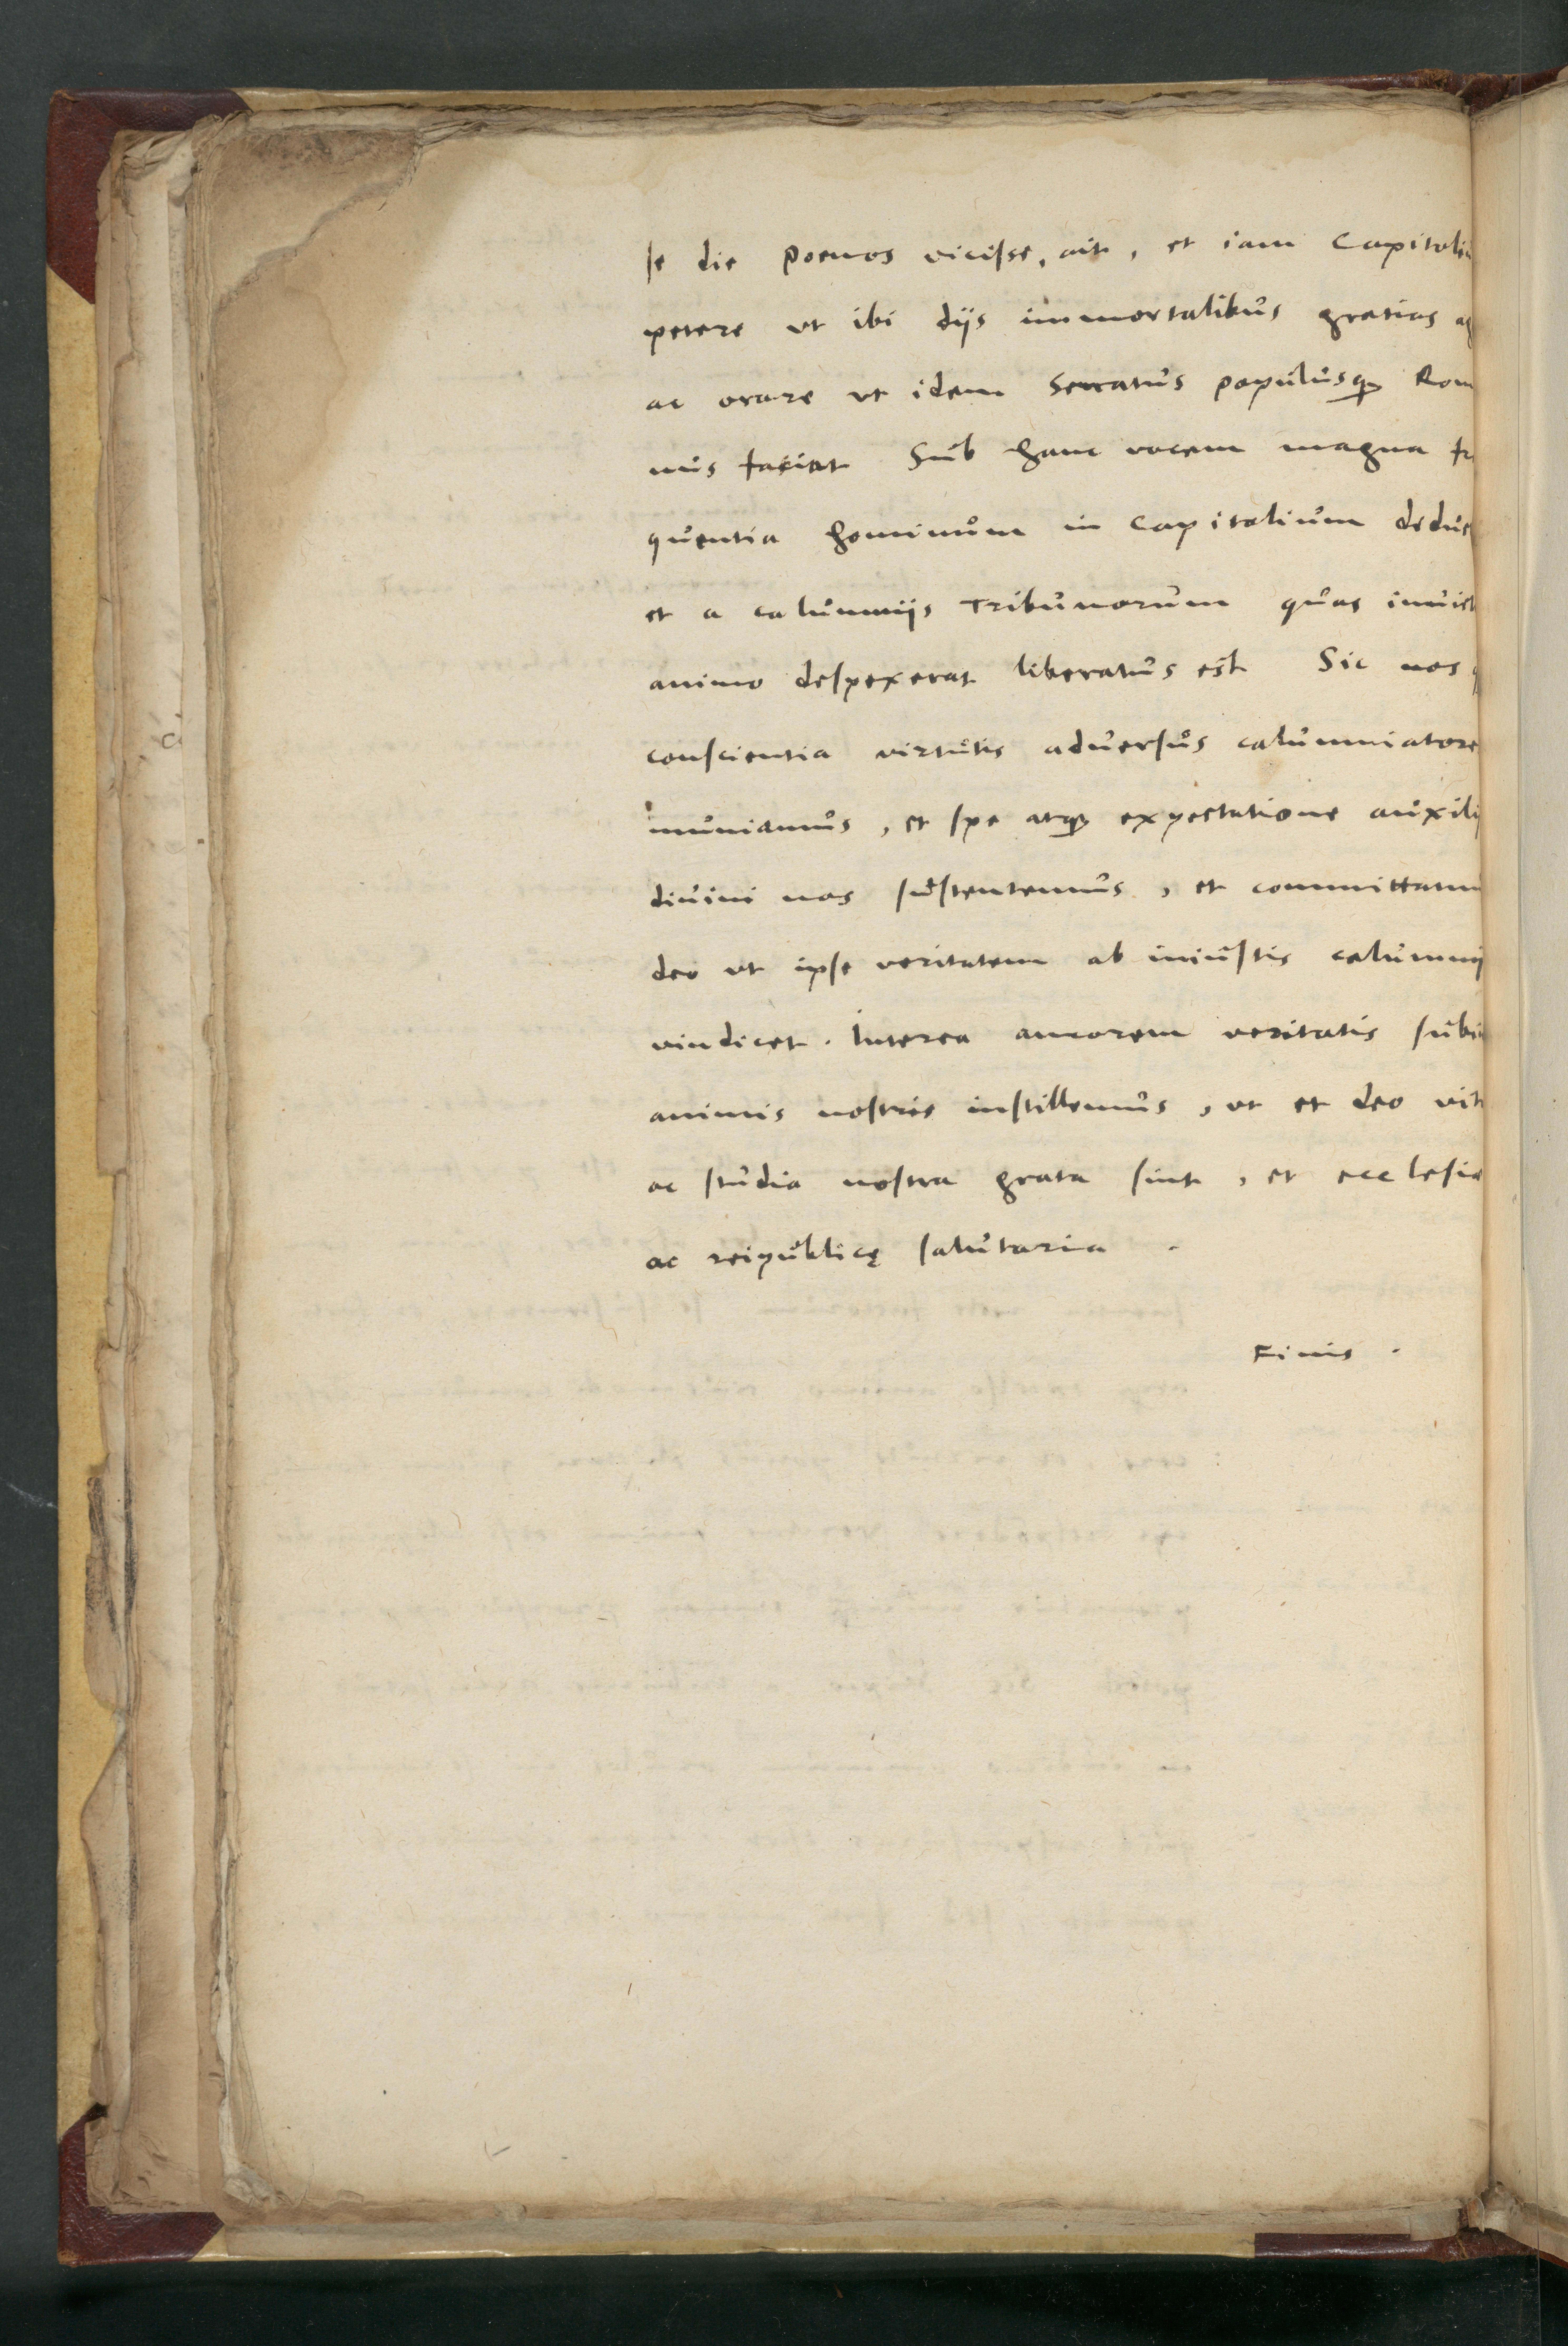 se die Poenos vicisse, ait, et iam Capitoli
petere ut ibi diis immortalibus gratias ag
ac orare ut idem Senatus populusq; Rom
nus faciat Sub hanc vocem magna fr
quentia hominum in Capitolium deduc
et a calumniis Tribunorum quas invict
animo despexerat liberatus est Sic nos
conscientia virtutis adversus calumniatore
muniamus, et spe atq; expectatione auxili
divini nos sustentemus, et committamu
deo ut ipse veritatem ab iniustis calumnij
vindicet. Interea amorem veritatis subi
animis nostris instillemus, ut et deo vit
ac studia nostra grata sint, et ecclesiæ
ac reipublicę salutaria.
Finis.